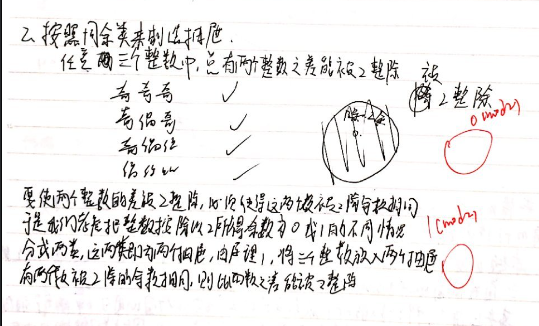 2、按照同余类来制造抽屉.
任意三个整数中,总有两个整数之差能被2整除
被2整除
奇奇奇 ✓
奇偶奇 ✓
奇偶偶 ✓
偶偶偶 ✓
0(mod2)
1(mod2)
要使两个整数的差被2整除,必须使得这两个数被2除余数相同
于是我们考虑把整数按除以2所得余数为0或1的不同情况
分成两类,这两类即为两个抽屉,由原理1,将三个整数放入两个抽屉
有两个数被2除的余数相同,则此两数之差能被2整除